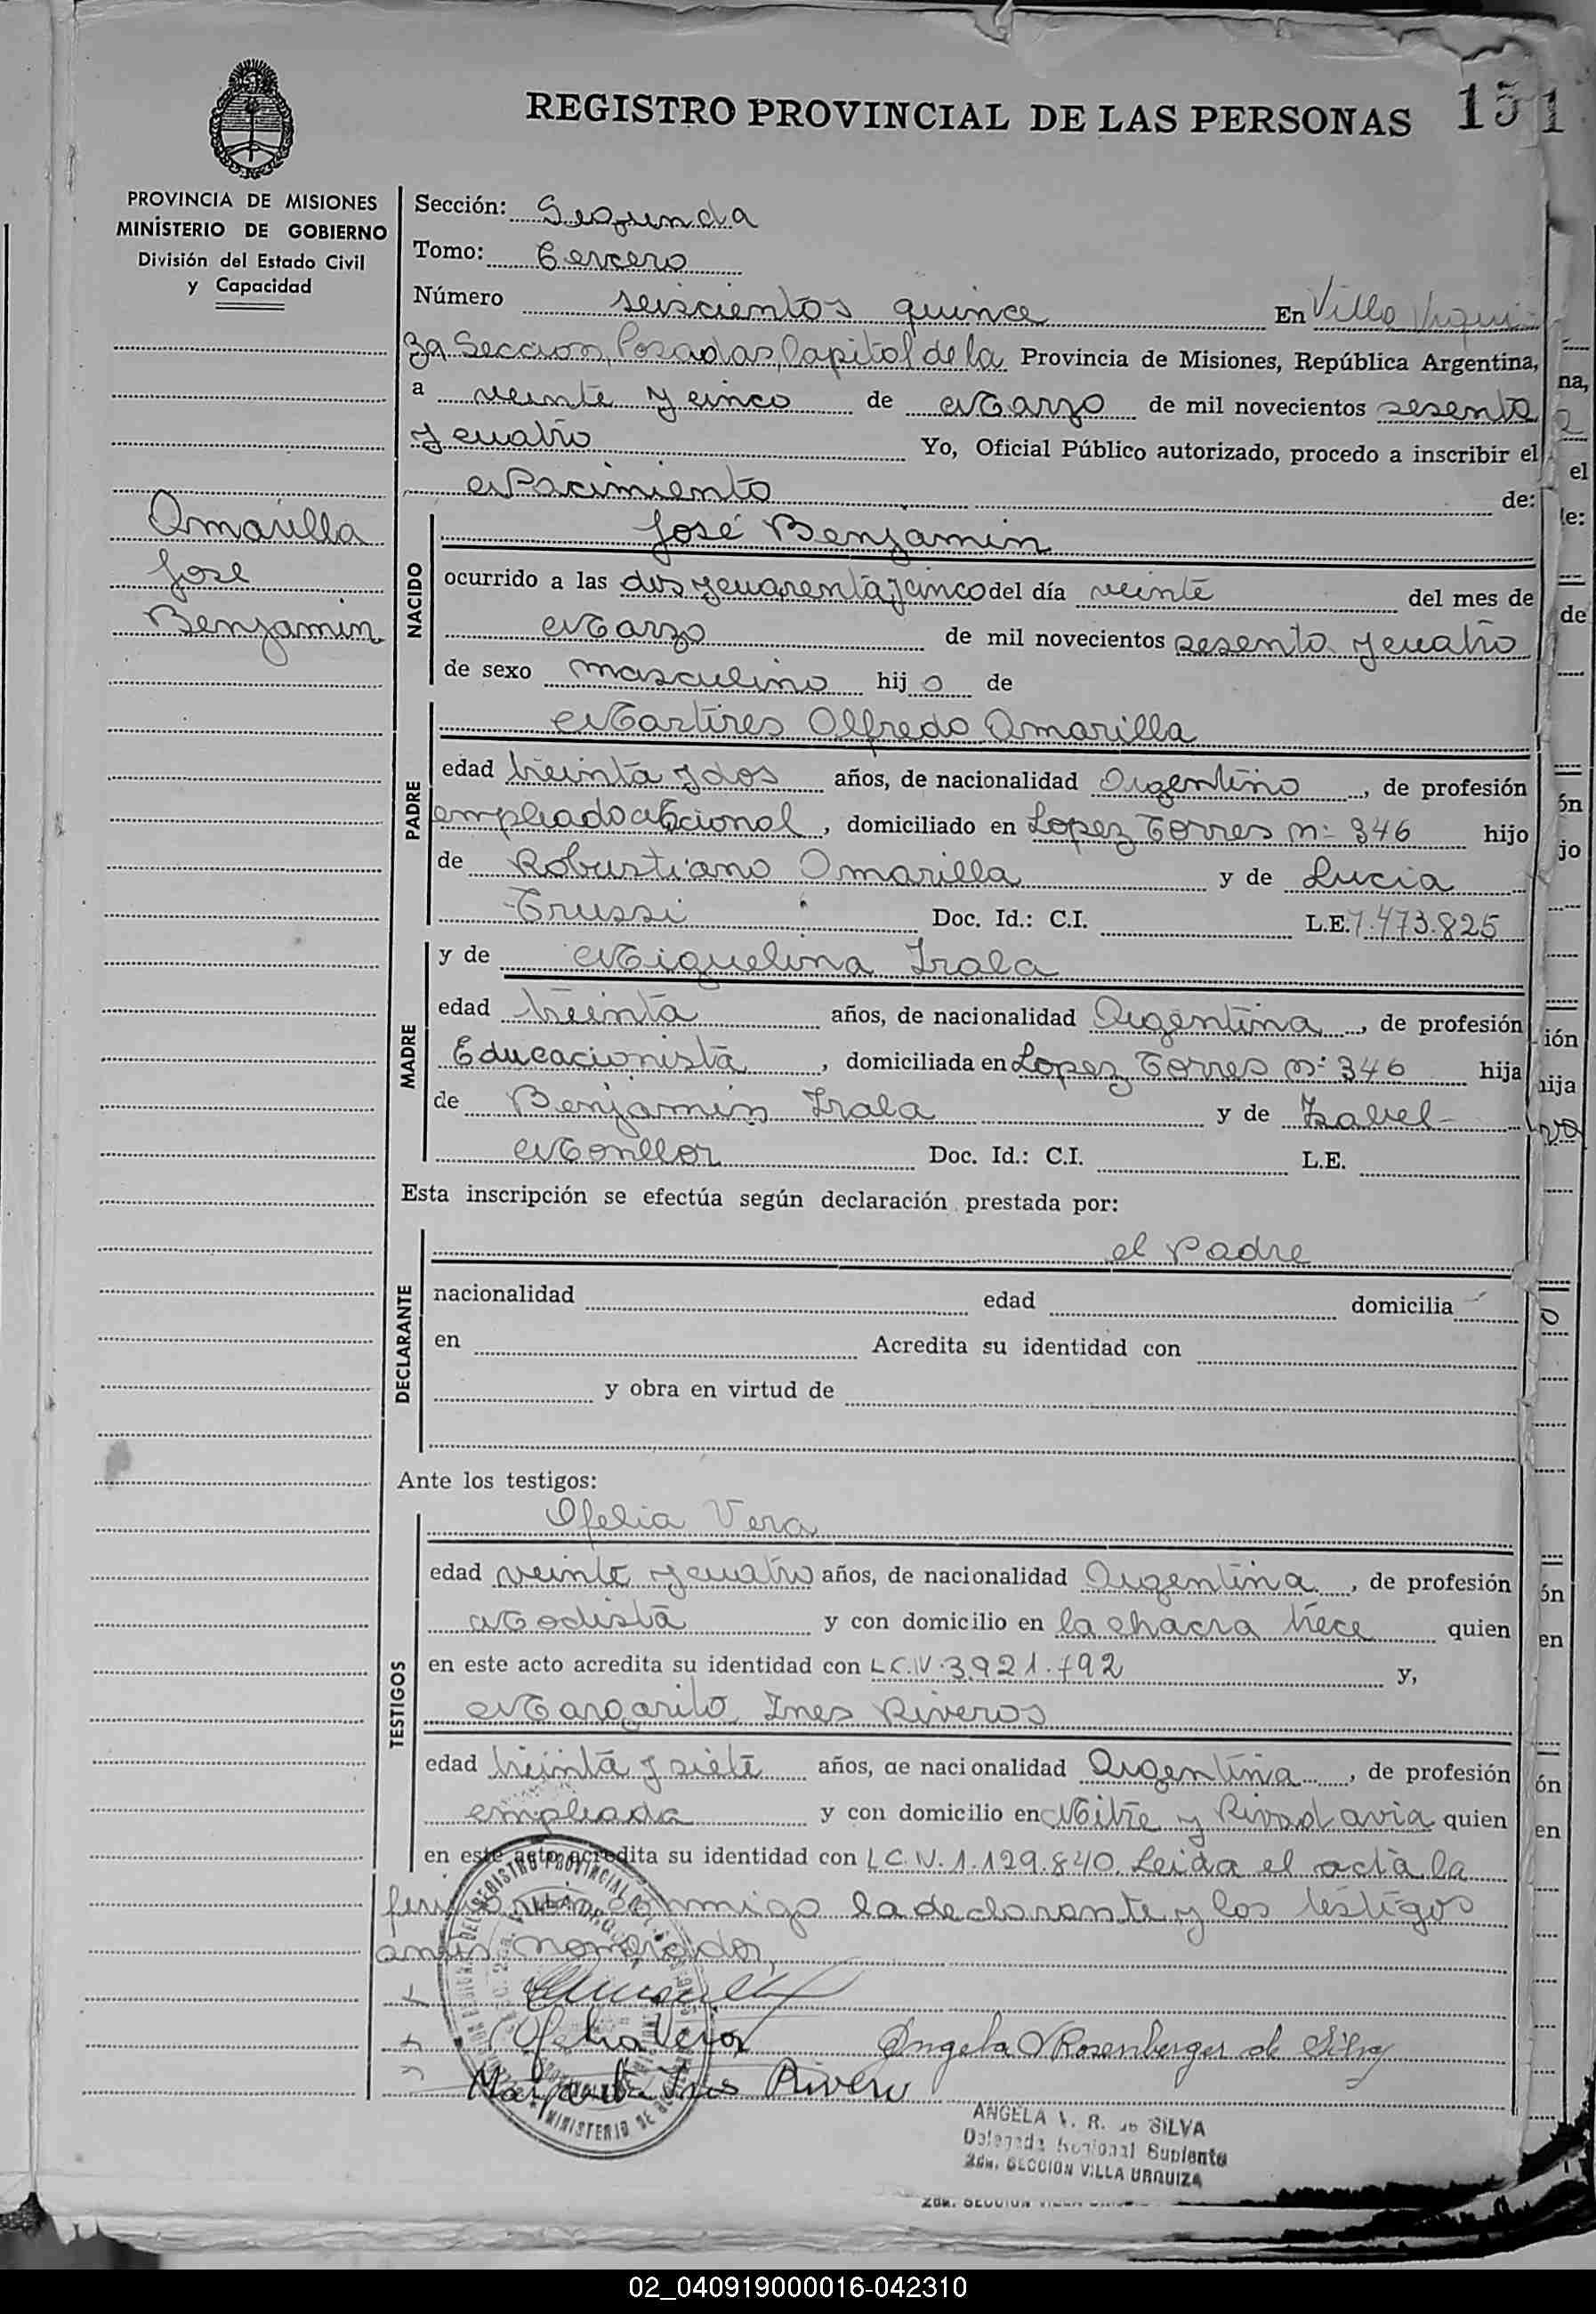 REGISTRO PROVINCIAL DE LAS PERSONAS 151
PROVINCIA DE MISIONES
MINISTERIO DE GOBIERNO
División del Estado Civil
y Capacidad
Amarilla
José
Benjamin
Sección: Segunda
Tomo: Tercero
Número seiscientos quince En Villa Urqui-
za Seccion, Posadas, Capital de la Provincia de Misiones, República Argentina,
a veinte y cinco de Marzo de mil novecientos sesenta
y cuatro Yo, Oficial Público autorizado, procedo a inscribir el
Nacimiento de:
NACIDO
José Benjamin
ocurrido a las dos y cuarenta y cinco del día veinte del mes de
Marzo de mil novecientos sesenta y cuatro
de sexo masculino hijo de
PADRE
Martires Alfredo Amarilla
edad treinta y dos años, de nacionalidad Argentino, de profesión
empleado Nacional, domiciliado en Lopez Torres nº 346 hijo
de Robustiano Amarilla y de Lucia
Trussi Doc. Id.: C.I. L.E. 7.473.825
MADRE
y de Miguelina Irala
edad treinta años, de nacionalidad Argentina, de profesión
Educacionista, domiciliada en Lopez Torres nº 346 hija
de Benjamin Irala y de Izabel
Monllor Doc. Id.: C.I. L.E.
Esta inscripción se efectúa según declaración prestada por:
DECLARANTE
el Padre
nacionalidad edad domicilia
en Acredita su identidad con
y obra en virtud de
Ante los testigos:
TESTIGOS
Ofelia Vera
edad veinte y cuatro años, de nacionalidad Argentina, de profesión
Modista y con domicilio en la chacra trece quien
en este acto acredita su identidad con L.C.N. 3.921.792 y,
Margarita Ines Riveros
edad treinta y siete años, de nacionalidad Argentina, de profesión
empleada y con domicilio en Mitre y Rivadavia quien
en este acto acredita su identidad con L.C.N. 1.129.840. Leida el acta la
conmigo la declarante y los testigos
antes nombrados,
Ofelia Vera Angela V Rosenberger de Silva
Margarita Ines Rivero
ANGELA V. R. de SILVA
Delegada Regional Suplente
2da. SECCION VILLA URQUIZA
02_040919000016-042310